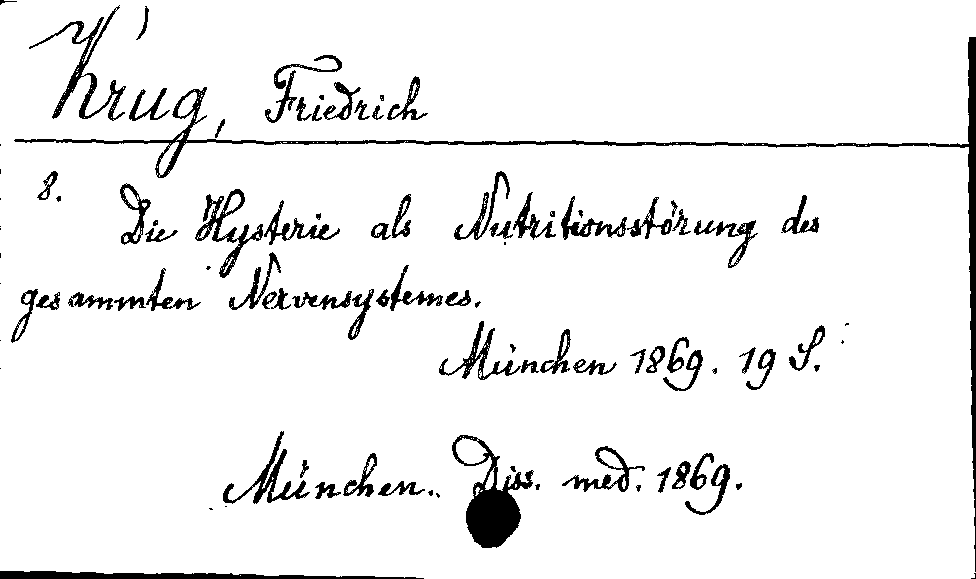 Krug, Friedrich
8.
Die Hysterie als Nutritionsstörung des
gesammten Nervensystemes.
München 1869. 19 S.
München. Diss. med. 1869.